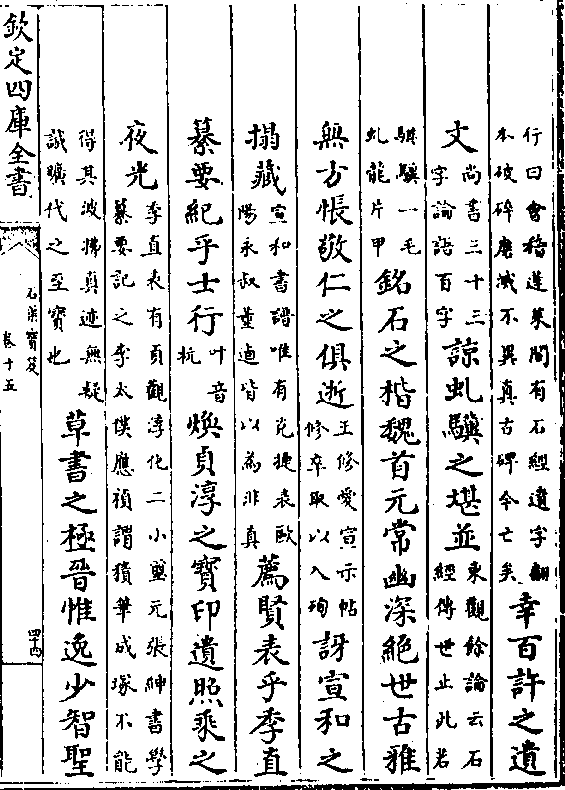 行曰會稽蓬萊閣有石經遺字翻
本破碎磨滅不異真古碑今亡矣
幸百許之遺
文
尚書三十三
字論語百字
諒虬驥之堪並
東觀餘論云石
經傳世止此若
騏驥一毛
虬龍片甲
銘石之楷魏首元常幽深絕世古雅
無方悵敬仁之俱逝
王修愛宣示帖
修卒取以入殉
訝宣和之
搨藏
宣和書譜唯有克捷表歐
陽永叔董逌皆以為非真
薦賢表乎季直
纂要紀乎士行
叶音
杭
煥貞淳之寶印遺照乘之
夜光
季直表有貞觀淳化二小璽元張紳書學
纂要記之李太僕應禎謂積筆成塚不能
得其波拂真迹無疑
誠曠代之至寶也
草書之極晉惟逸少智聖
欽定四庫全書
石渠寶笈
卷十五
四十四